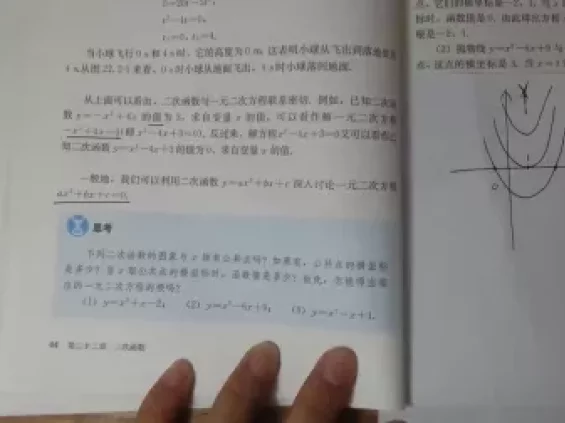 t²-4t=0,
当小球飞行0 s和4 s时，它的高度为0 m. 这表明小球从飞出到落地要用
4 s. 从图22.2-1来看，0 s时小球从地面飞出，4 s时小球落回地面.
从上面可以看出，二次函数与一元二次方程联系密切. 例如，已知二次函
数y=-x²+4x的值为3，求自变量x的值，可以看作解一元二次方程
-x²+4x=3(即x²-4x+3=0). 反过来，解方程x²-4x+3=0又可以看作已
知二次函数y=x²-4x+3的值为0，求自变量x的值.
一般地，我们可以利用二次函数y=ax²+bx+c深入讨论一元二次方程
ax²+bx+c=0.
思考
下列二次函数的图象与x轴有公共点吗？如果有，公共点的横坐标
是多少？当x取公共点的横坐标时，函数值是多少？由此，你能得出相
应的一元二次方程的根吗？
(1) y=x²+x-2； (2) y=x²-6x+9； (3) y=x²-x+1.
第二十二章 二次函数
标时，函数值是0. 由此得出方程
是-2，1.
(2) 抛物线y=x²-6x+9与
点，这点的横坐标是3. 当x=
0